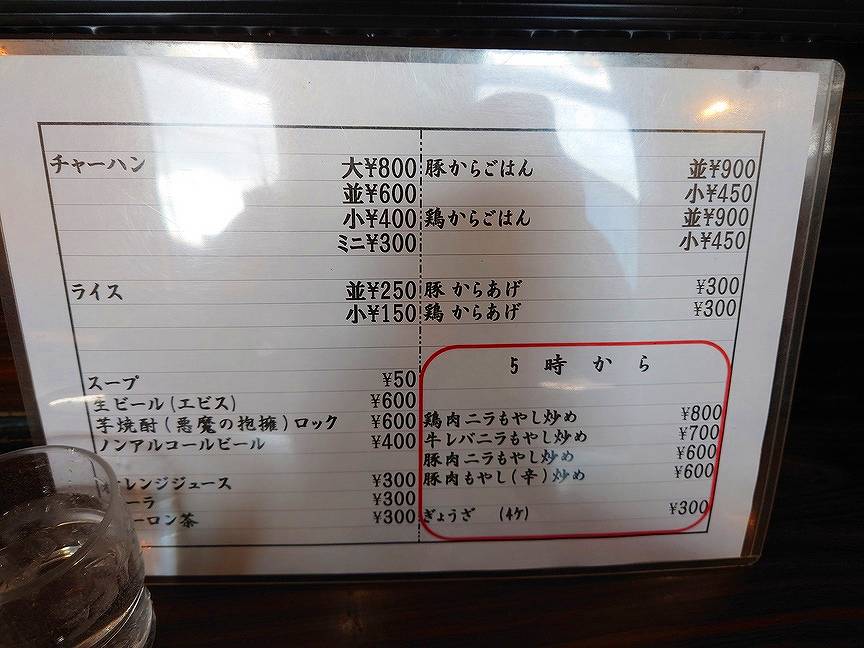 チャーハン 大¥800
並¥600
小¥400
ミニ¥300
ライス 並¥250
小¥150
スープ ¥50
生ビール(エビス) ¥600
芋焼酎(悪魔の抱擁)ロック ¥600
ノンアルコールビール ¥400
レンジジュース ¥300
ーラ ¥300
ーロン茶 ¥300
豚からごはん 並¥900
小¥450
鶏からごはん 並¥900
小¥450
豚 からあげ ¥300
鶏 からあげ ¥300
5 時 か ら
鶏肉ニラもやし炒め ¥800
牛レバニラもやし炒め ¥700
豚肉ニラもやし炒め ¥600
豚肉もやし(辛)炒め ¥600
ぎょうざ (4ケ) ¥300